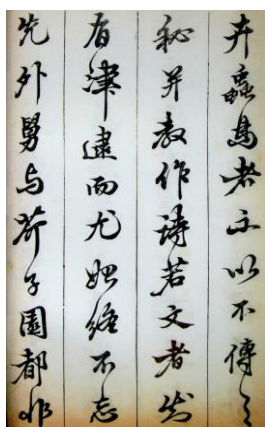 卉蟲鳥者示以不傳之
秘并教作詩若文者
有津逮而尤始終不忘
先外舅与芥子園都非